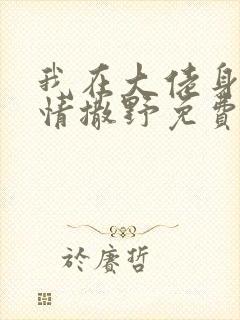 我在大佬身
情撒野免費
於賡哲